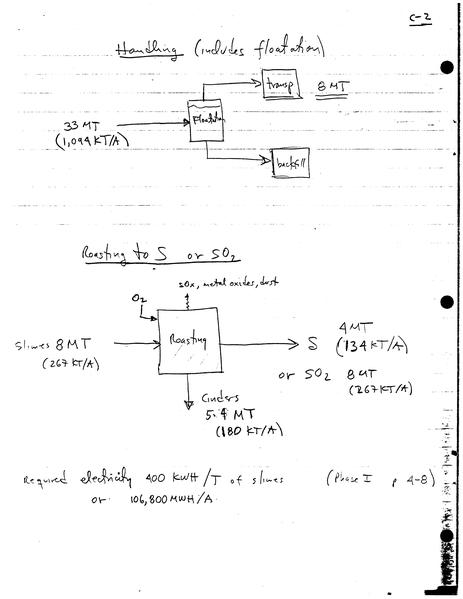 C-2
Handling (includes floatation)
transp 8 MT
33 MT Floatation
(1,094 KT/A)
backfill
Roasting to S or SO2
SOx, metal oxides, dust
O2
Slimes 8 MT Roasting S 4 MT
(267 KT/A) (134 KT/A)
or SO2 8 MT
(267 KT/A)
Cinders
5.4 MT
(180 KT/A)
Required electricity 400 KWH/T of slimes (Phase I p 4-8)
or 106,800 MWH/A